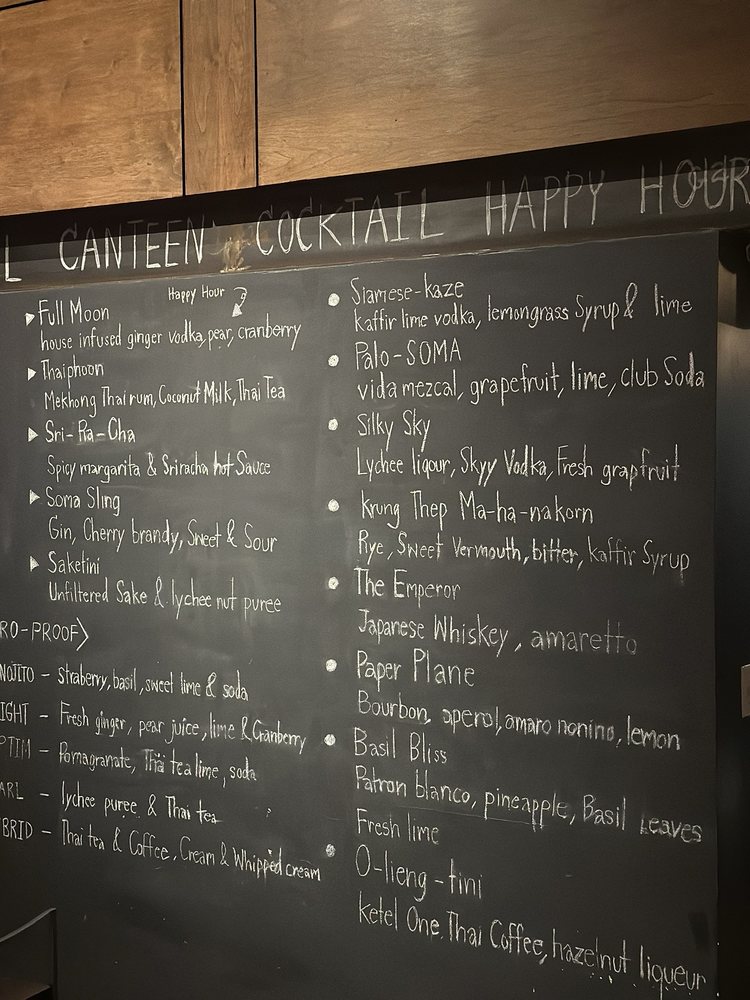 L CANTEEN COCKTAIL HAPPY HOUR
Happy Hour
Full Moon
house infused ginger vodka, pear, cranberry
Thaiphoon
Mekhong Thai rum, Coconut Milk, Thai Tea
Sri-Ra-Cha
Spicy margarita & Sriracha hot Sauce
Soma Sling
Gin, Cherry brandy, Sweet & Sour
Saketini
Unfiltered Sake & lychee nut puree
RO-PROOF>
NOJITO - straberry, basil, sweet lime & soda
IGHT - Fresh ginger, pear juice, lime & Cranberry
PTIM - Pomagranate, Thai tea lime, soda
ARL - lychee puree & Thai tea
BRID - Thai tea & Coffee, Cream & Whipped cream
Siamese-kaze
kaffir lime vodka, lemongrass Syrup & lime
Palo-SOMA
vida mezcal, grapefruit, lime, club Soda
Silky Sky
Lychee liqour, Skyy Vodka, Fresh grapfruit
Krung Thep Ma-ha-nakorn
Rye, Sweet Vermouth, bitter, kaffir Syrup
The Emperor
Japanese Whiskey, amaretto
Paper Plane
Bourbon, aperol, amaro nonino, lemon
Basil Bliss
Patron blanco, pineapple, Basil Leaves
Fresh lime
O-lieng-tini
Ketel One, Thai Coffee, hazelnut liqueur